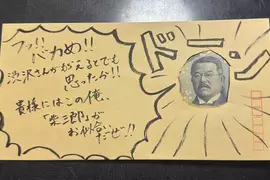 フッ!!
バカめ!!
渋沢さんがもらえるとでも
思ったか!!
貴様にはこの俺、
「柴三郎」が
お似合いだぜ!!
ドーン